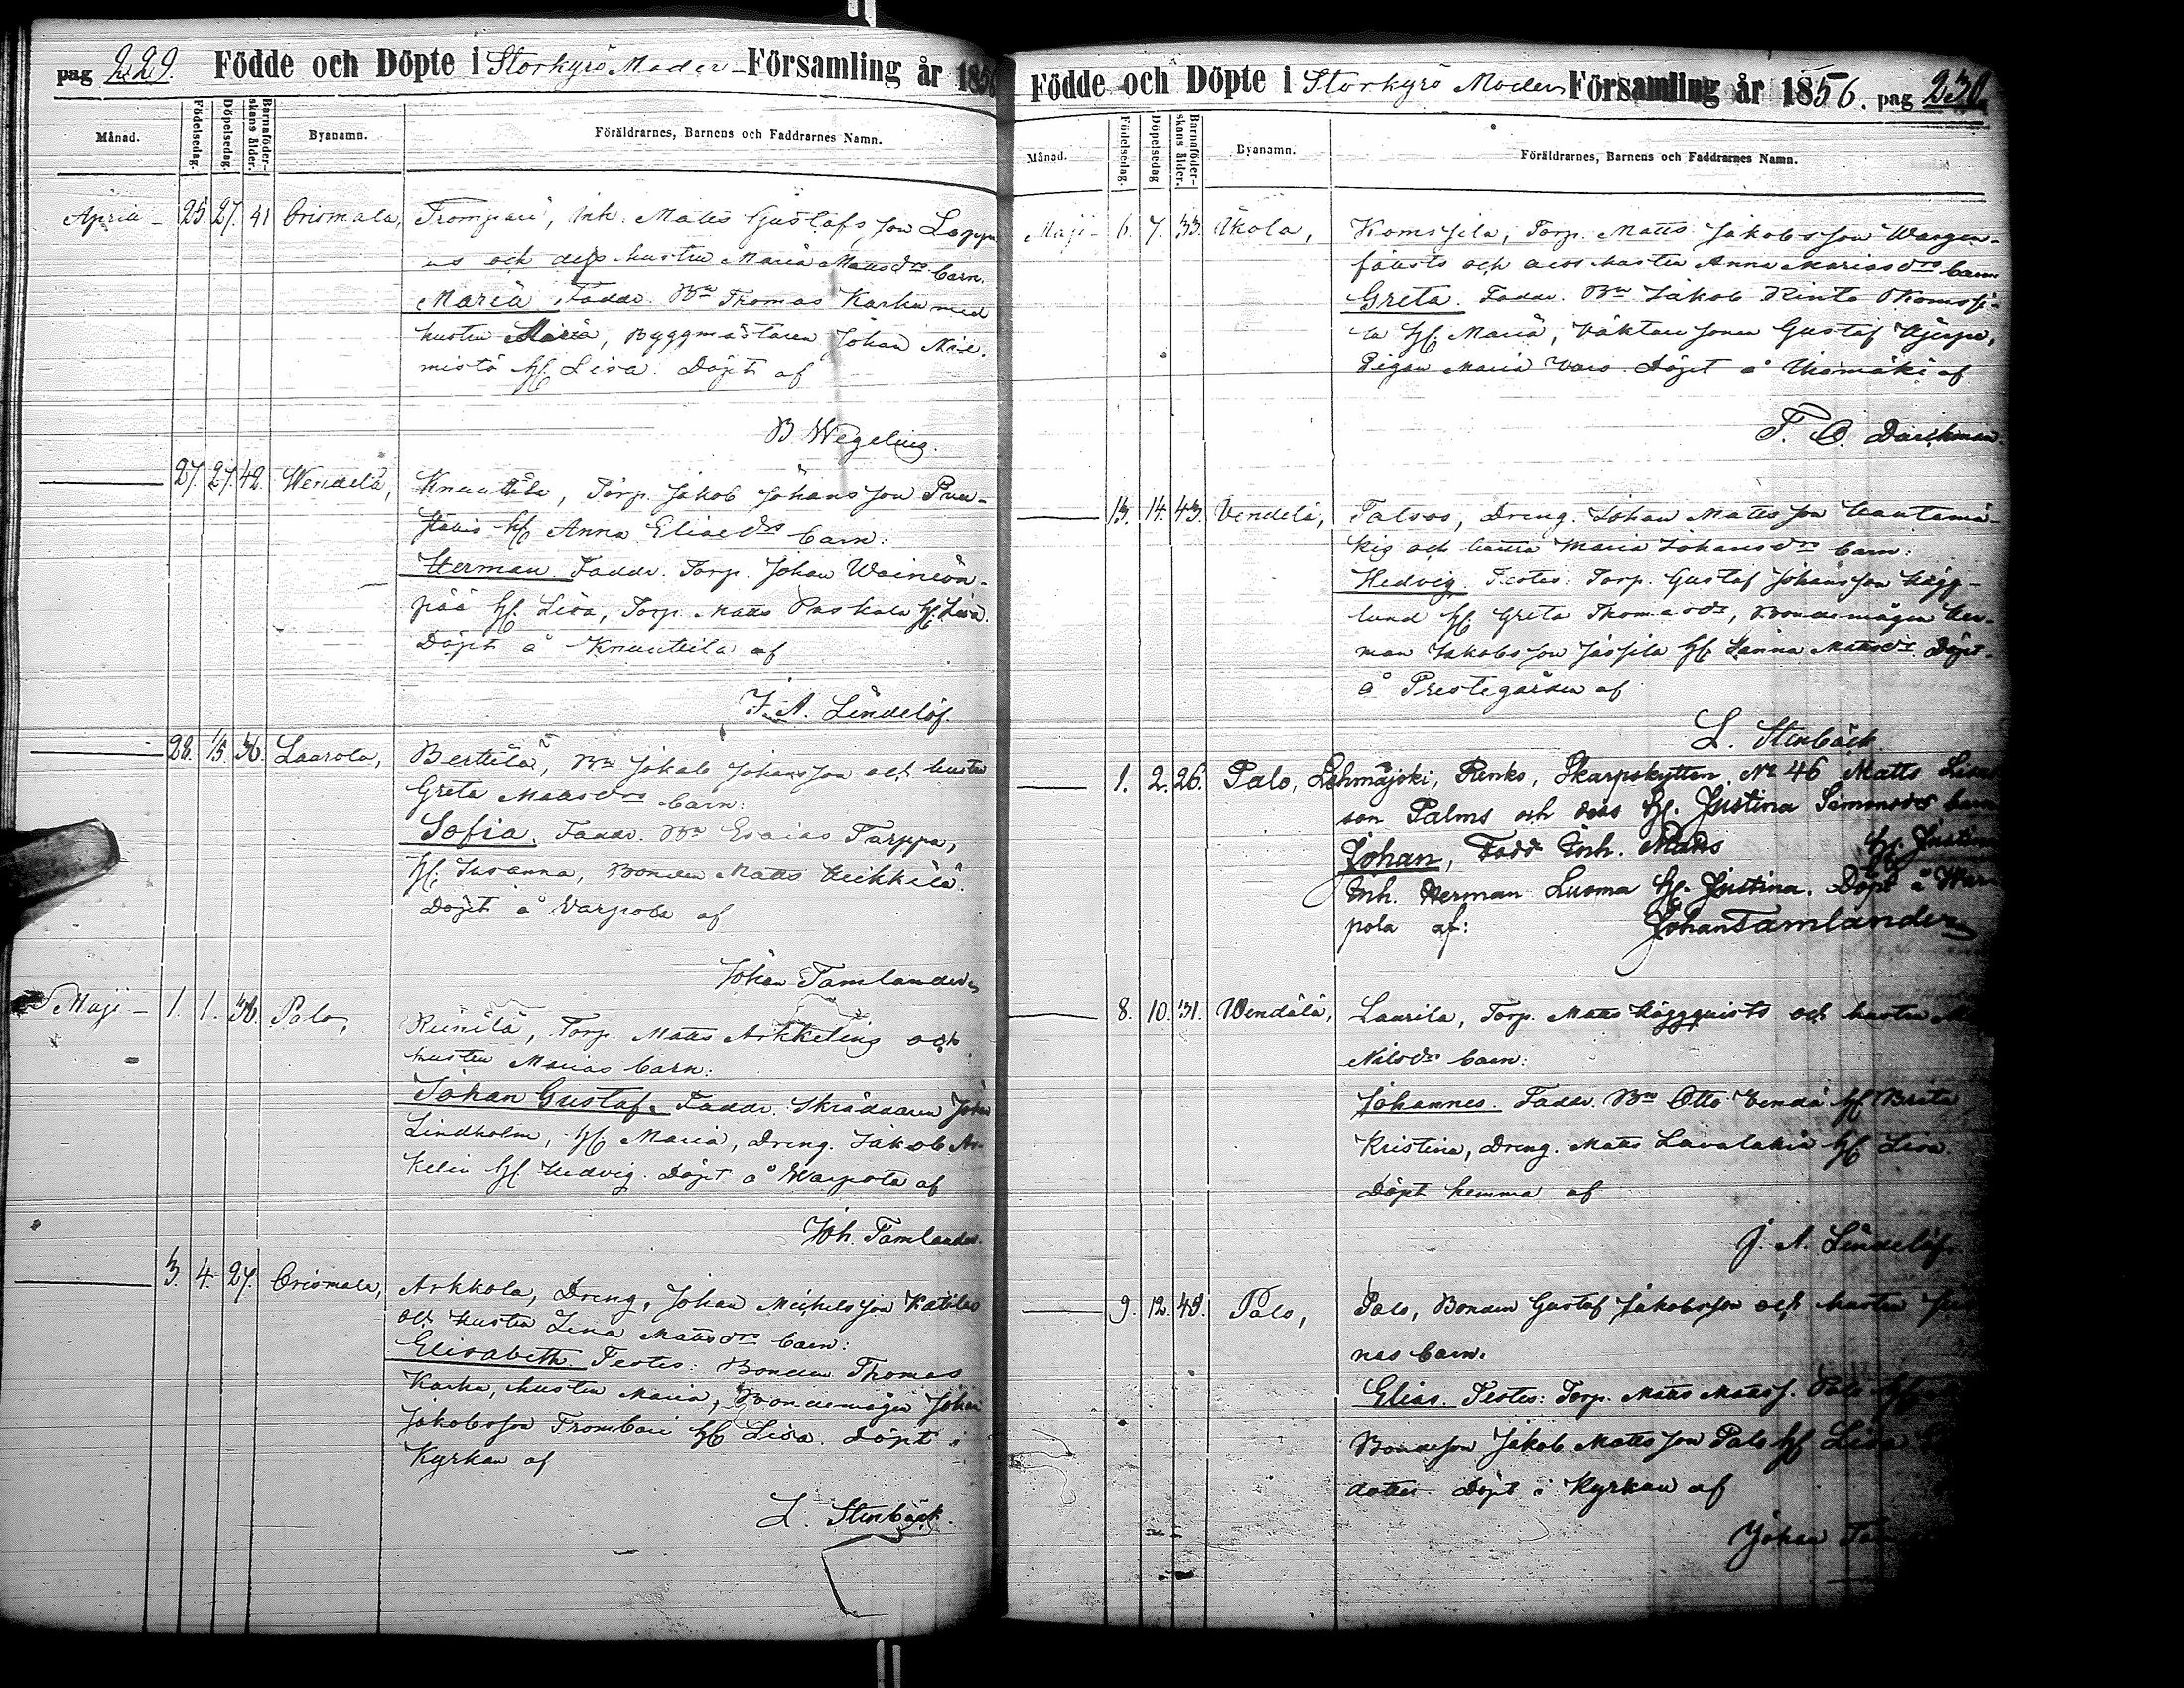 pag 229. Födde och Döpte i Storkyrö Moder-Församling år 1856
Månad. Födelsedag. Döpelsedag. Barnaföderskans ålder. Byanamn. Föräldrarnes, Barnens och Faddrarnes Namn.
April - 25. 27. 41 Orismala, Trompari, Inh. Matts Gustafsson
och dess hustru Maria Mattsdrs barn.
Maria. Faddr. Bn Thomas Karhu med
hustru Maria, Byggmästaren Johan
mistö hf Lisa. Döpt af
B Wegelius.
27. 27. 42. Wendelä, Knuutila, Torp. Jakob Johansson
hf Anna Eliaedrs barn:
Herman. Faddr. Torp. Johan Wainion-
pää hf. Lisa, Torp. Matts Paskala hf. Lisa.
Döpt å Knuutila af
J. A. Lindelöf.
28. 15. 36. Laarola, Berttila, Bn Jakob Johansson och hustru
Greta Mattsdrs barn:
Sofia. Faddr. Bn Esaias Tarppa,
hf. Susanna, Bonden Matts Heikkilä.
Döpt å Varpola af
Johan Tamlander
Maji - 1. 1. 36. Palo, Riinilä, Torp. Matts Arkkelins och
hustru Marias barn:
Johan Gustaf. Faddr. Skräddaren Johan
Lindholm, hf Maria, Dreng. Jakob Ar-
kelin hf Hedvig. Döpt å Warpola af
Joh. Tamlander.
3. 4. 27. Orismala, Arkkola, Dreng. Johan Michelsson Katilas
och hustru Lena Mattsdrs barn:
Elisabeth. Testes: Bonden Thomas
Karhu, hustru Maria, Bondemågen Johan
Jakobsson Trombari hf Lisa. Döpt i
Kyrkan af
L. Stenbäck.
Födde och Döpte i Storkyrö Moder Församling år 1856. pag 230.
Månad. Födelsedag. Döpelsedag Barnaföderskans ålder. Byanamn. Föräldrarnes, Barnens och Faddrarnes Namn.
Maji - 6. 7. 33. Ukola, Komssila, Torp. Matts Jakobsson Wargen-
och dess hustru Anna Mariasdrs barn
Greta. Faddr. Bn Jakob Rinto Komssi-
la hf. Maria, Gustaf
Pigan Maria Döpt å af
13. 14. 43. Vendelä, Talsos, Dreng. Johan Mattsson Hautamä-
kis och hustru Maria Johansdrs barn:
Hedvig. Testes: Torp. Gustaf Johansson Hägg-
lund hf. Greta Thomasdr, Bondemågen Her-
man Jakobsson hf Sanna Mattsdr. Döpt
å Prestegården af
L. Stenbäck.
1. 2. 26. Palo, Lehmäjoki, Renko, Skarpskytten No 46 Matts
son Palms och dess hf. Justina Simonsdrs barn
Johan, Fadd Inh. Matts hf. Justina
Inh. Herman Luoma hf. Justina. Döpt å War-
pola af: Johan Tamlander
8. 10. 31. Wendälä, Laurila, Torp. Matts Häggquists och hustru
Nilsdrs barn:
Johannes. Faddr. Bn Otto hf Brita
Kristina, Dreng. Matts hf Lisa.
Döpt hemma af
J. A. Lindelöf.
9. 12. 48. Palo, Palo, Bonden Gustaf Jakobsson och hustru
nas barn.
Elias. Testes: Torp. Matts Mattss. Palo hf
Bondeson Jakob Mattsson Palo hf Lisa
dotter. Döpt i Kyrkan af
Johan